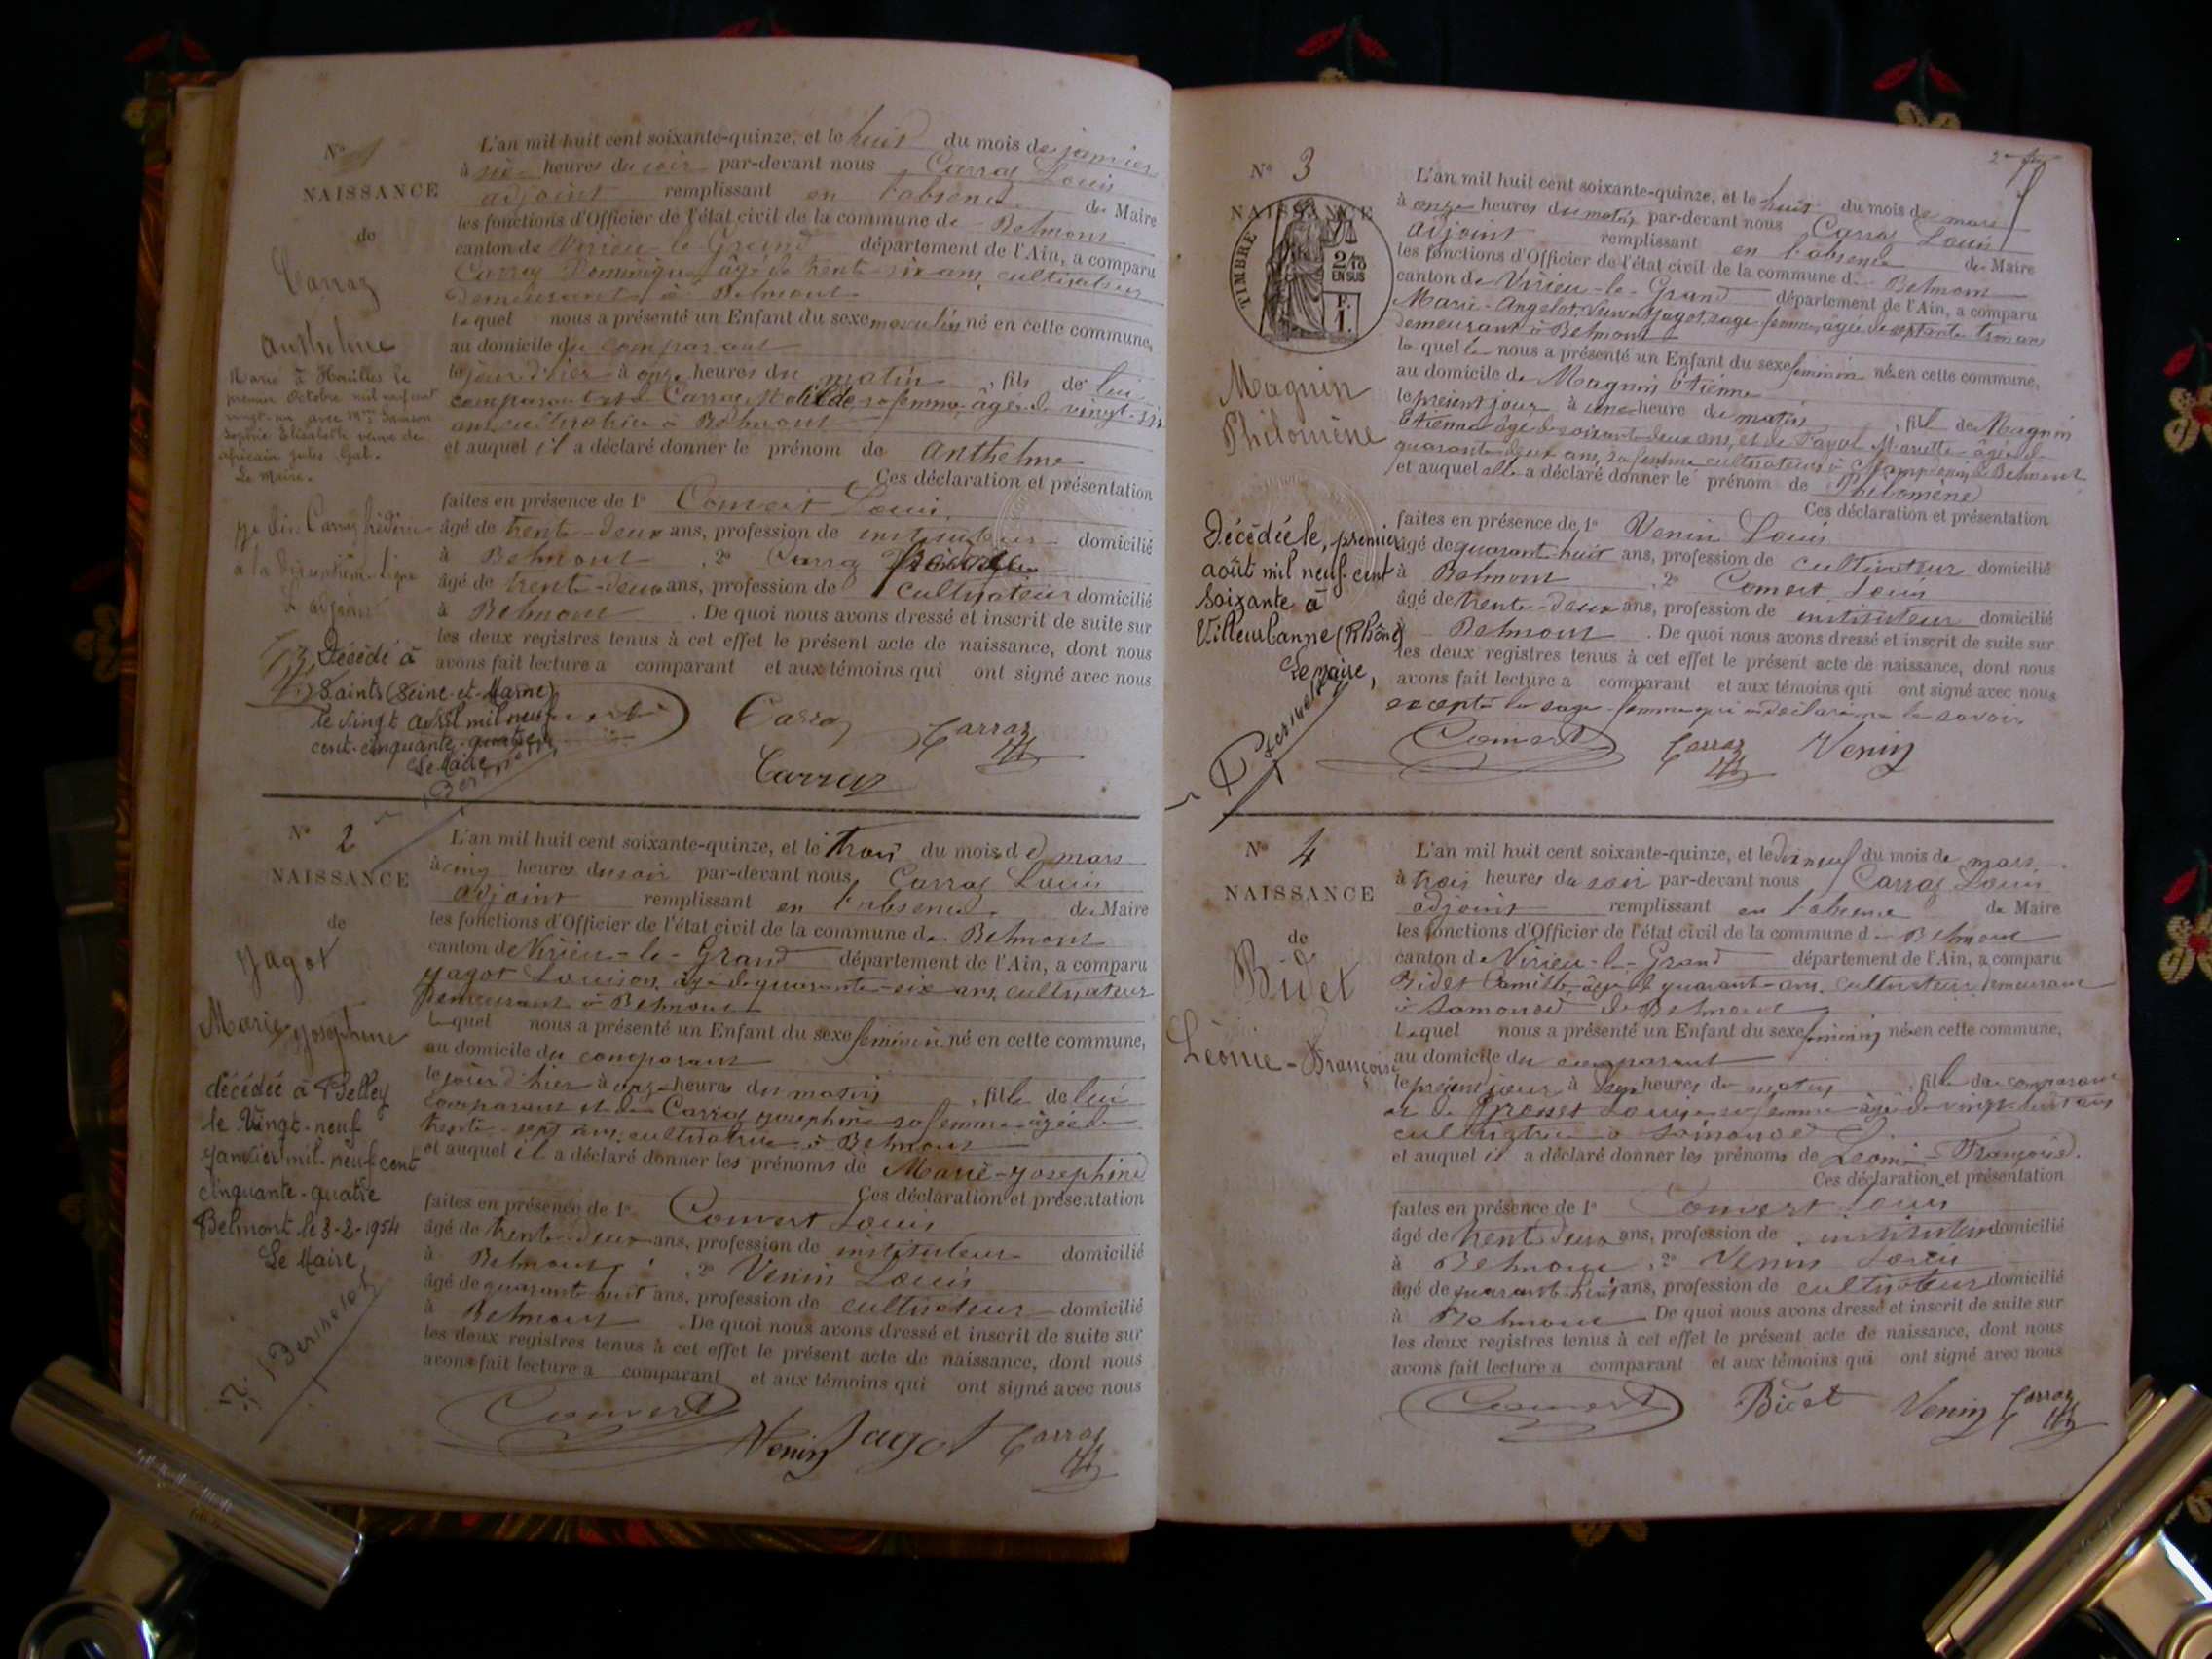 N° 1
NAISSANCE
de
Carraz
Anthelme
Marié à
premier Octobre mil neuf cent
vingt-un avec Mme
Sophie Elisabeth veuve de
africain jules Gal.
Le Maire.
Décédé à
Saints (Seine-et-Marne)
le vingt avril mil neuf
cent-cinquante-quatre
Le Maire
L'an mil huit cent soixante-quinze, et le huit du mois de janvier
à six heures du soir par-devant nous Carraz Louis
adjoint remplissant en l'absence du Maire
les fonctions d'Officier de l'état civil de la commune de Belmont
canton de Virieu-le-Grand département de l'Ain, a comparu
Carraz Dominique, âgé de trente-six ans, cultivateur
demeurant à Belmont
lequel nous a présenté un Enfant du sexe masculin né en cette commune,
au domicile du comparant
le jour d'hier à onze heures du matin, fils de lui
comparant et de Carraz Matilde sa femme âgée de vingt-six
ans cultivatrice à Belmont
et auquel il a déclaré donner le prénom de Anthelme
Ces déclaration et présentation
faites en présence de 1° Convert Louis
âgé de trente-deux ans, profession de instituteur domicilié
à Belmont, 2° Carraz
âgé de trente-deux ans, profession de cultivateur domicilié
à Belmont. De quoi nous avons dressé et inscrit de suite sur
les deux registres tenus à cet effet le présent acte de naissance, dont nous
avons fait lecture a comparant et aux témoins qui ont signé avec nous
Carraz Carraz
Carraz
N° 2
NAISSANCE
de
Jagot
Marie Josephine
décédée à Belley
le vingt-neuf
janvier mil neuf cent
cinquante-quatre
Belmont le 3-2-1954
Le Maire,
Berthelot
L'an mil huit cent soixante-quinze, et le trois du mois de mars
à cinq heures du soir par-devant nous Carraz Louis
adjoint remplissant en l'absence du Maire
les fonctions d'Officier de l'état civil de la commune de Belmont
canton de Virieu-le-Grand département de l'Ain, a comparu
Jagot Louison, âgé de quarante-six ans, cultivateur
demeurant à Belmont
lequel nous a présenté un Enfant du sexe féminin né en cette commune,
au domicile du comparant
le jour d'hier à onze heures du matin, fille de lui
comparant et de Carraz Josephine sa femme âgée de
trente-sept ans, cultivatrice à Belmont
et auquel il a déclaré donner les prénoms de Marie-Josephine
Ces déclaration et présentation
faites en présence de 1° Convert Louis
âgé de trente-deux ans, profession de instituteur domicilié
à Belmont, 2° Venin Louis
âgé de quarante-huit ans, profession de cultivateur domicilié
à Belmont. De quoi nous avons dressé et inscrit de suite sur
les deux registres tenus à cet effet le présent acte de naissance, dont nous
avons fait lecture a comparant et aux témoins qui ont signé avec nous
Convert Venin Jagot Carraz
N° 3
NAISSANCE
TIMBRE
2/10
EN SUS
F.
1.
Magnin
Philomène
Décédée le, premier
août mil neuf-cent
soixante à
Villeurbanne (Rhône)
Le Maire,
L'an mil huit cent soixante-quinze, et le huit du mois de mars
à onze heures du matin par-devant nous Carraz Louis
adjoint remplissant en l'absence du Maire
les fonctions d'Officier de l'état civil de la commune de Belmont
canton de Virieu-le-Grand département de l'Ain, a comparu
Marie-Angelot, Veuve Jagot, sage femme, âgée de septante trois ans
demeurant à Belmont
laquelle nous a présenté un Enfant du sexe féminin né en cette commune,
au domicile de Magnin Etienne
le présent jour à une heure du matin, fille de Magnin
Etienne âgé de soixante-deux ans, et de Mariette âgée de
quarante-deux ans, sa femme cultivateurs à Belmont
et auquel elle a déclaré donner le prénom de Philomène
Ces déclaration et présentation
faites en présence de 1° Venin Louis
âgé de quarante-huit ans, profession de cultivateur domicilié
à Belmont, 2° Convert Louis
âgé de trente-deux ans, profession de instituteur domicilié
à Belmont. De quoi nous avons dressé et inscrit de suite sur
les deux registres tenus à cet effet le présent acte de naissance, dont nous
avons fait lecture a comparant et aux témoins qui ont signé avec nous
excepté la sage-femme qui a déclaré ne le savoir
Convert Carraz Venin
N° 4
NAISSANCE
de
Bidet
Léonie-Françoise
L'an mil huit cent soixante-quinze, et le dix neuf du mois de mars
à trois heures du soir par-devant nous Carraz Louis
adjoint remplissant en l'absence du Maire
les fonctions d'Officier de l'état civil de la commune de Belmont
canton de Virieu-le-Grand département de l'Ain, a comparu
Bidet Camille âgé de quarante-ans, cultivateur demeurant
à Samonod de Belmont
Lequel nous a présenté un Enfant du sexe féminin né en cette commune,
au domicile du comparant
le présent jour à sept heures du matin, fille du comparant
et de Louise sa femme âgée de vingt-huit ans
cultivatrice à Samonod
et auquel il a déclaré donner les prénoms de Léonie-Françoise.
Ces déclaration et présentation
faites en présence de 1° Convert Louis
âgé de trente deux ans, profession de instituteur domicilié
à Belmont, 2° Venin Louis
âgé de quarante-huit ans, profession de cultivateur domicilié
à Belmont De quoi nous avons dressé et inscrit de suite sur
les deux registres tenus à cet effet le présent acte de naissance, dont nous
avons fait lecture a comparant et aux témoins qui ont signé avec nous
Convert Bidet Venin Carraz